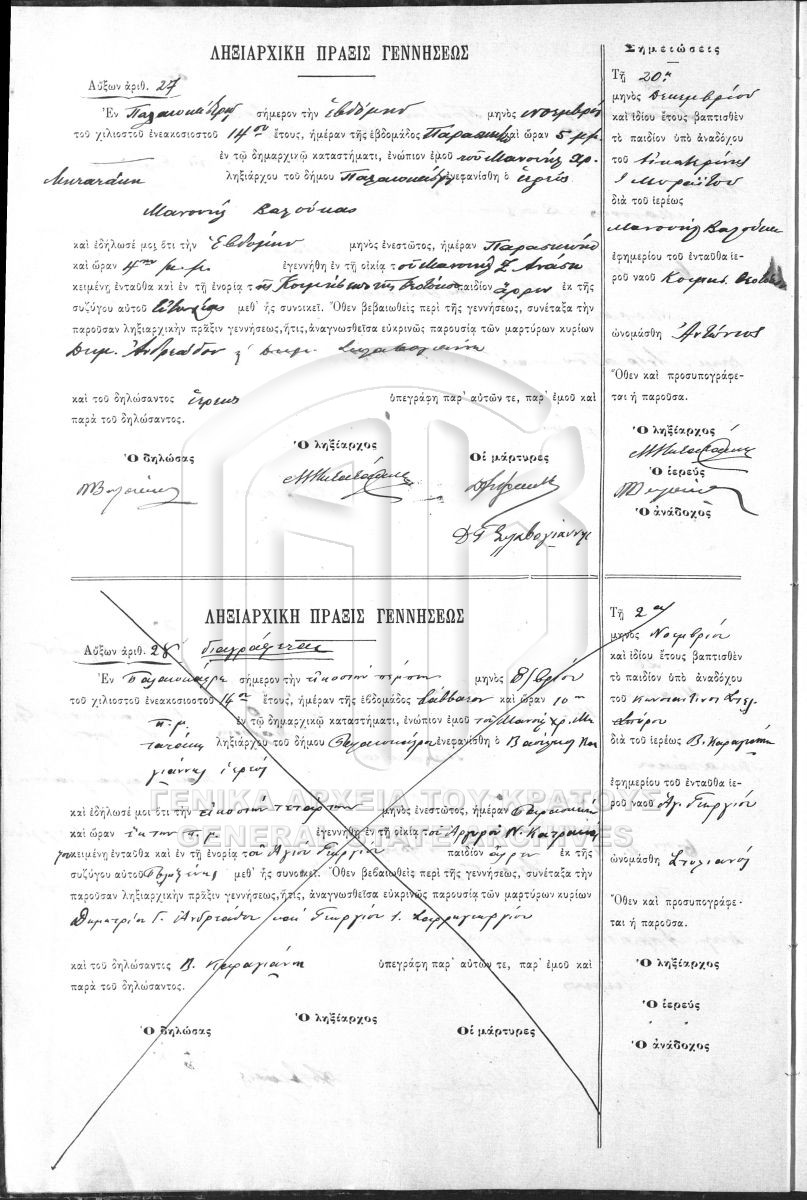 ΛΗΞΙΑΡΧΙΚΗ ΠΡΑΞΙΣ ΓΕΝΝΗΣΕΩΣ
Αὔξων ἀριθ. 27
Ἐν σήμερον τὴν ἑβδόμην μηνὸς Νοεμβρίου
τοῦ χιλιοστοῦ ἐνεακοσιοστοῦ 14ου ἔτους, ἡμέραν τῆς ἑβδομάδος Παρασκευὴν καὶ ὥραν 5 μμ
ἐν τῷ δημαρχικῷ καταστήματι, ἐνώπιον ἐμοῦ τοῦ Μανουὴλ Χρ.
ληξιάρχου τοῦ δήμου ἐνεφανίσθη ὁ ἱερεὺς
Μανουὴλ Βαλούκας
καὶ ἐδήλωσέ μοι ὅτι τὴν Ἑβδόμην μηνὸς ἐνεστῶτος, ἡμέραν Παρασκευὴν
καὶ ὥραν 4ην μ.μ. ἐγεννήθη ἐν τῇ οἰκίᾳ τοῦ Μανουὴλ
κειμένῃ ἐνταῦθα καὶ ἐν τῇ ἐνορίᾳ τῆς Κοιμήσεως τῆς Θεοτόκου παιδίον ἄρρεν ἐκ τῆς
συζύγου αὐτοῦ μεθ' ἧς συνοικεῖ. Ὅθεν βεβαιωθεὶς περὶ τῆς γεννήσεως, συνέταξα τὴν
παροῦσαν ληξιαρχικὴν πρᾶξιν γεννήσεως, ἥτις, ἀναγνωσθεῖσα εὐκρινῶς παρουσίᾳ τῶν μαρτύρων κυρίων
Δημ. Ἀνδρεάδου Δημ.
καὶ τοῦ δηλώσαντος ἱερέως ὑπεγράφη παρ' αὐτῶν τε, παρ' ἐμοῦ καὶ
παρὰ τοῦ δηλώσαντος.
Ὁ δηλώσας Ὁ ληξίαρχος Οἱ μάρτυρες
Σημειώσεις
Τῇ 20ῃ
μηνὸς Δεκεμβρίου
καὶ ἰδίου ἔτους βαπτισθὲν
τὸ παιδίον ὑπὸ ἀναδόχου
τοῦ Αἰκατερίνης
διὰ τοῦ ἱερέως
Μανουὴλ Βαλούκα
ἐφημερίου τοῦ ἐνταῦθα ἱε-
ροῦ ναοῦ Κοιμησ. Θεοτόκου
ὠνομάσθη Ἀντώνιος
Ὅθεν καὶ προσυπογράφε-
ται ἡ παροῦσα.
Ὁ ληξίαρχος
Ὁ ἱερεὺς
Ὁ ἀνάδοχος
ΛΗΞΙΑΡΧΙΚΗ ΠΡΑΞΙΣ ΓΕΝΝΗΣΕΩΣ
Αὔξων ἀριθ. 28 διαγράφεται
Ἐν σήμερον τὴν εἰκοστὴν πέμπτην μηνὸς
τοῦ χιλιοστοῦ ἐνεακοσιοστοῦ 14ου ἔτους, ἡμέραν τῆς ἑβδομάδος Σάββατον καὶ ὥραν 10ην
π.μ. ἐν τῷ δημαρχικῷ καταστήματι, ἐνώπιον ἐμοῦ τοῦ Μανουὴλ Χρ.
ληξιάρχου τοῦ δήμου ἐνεφανίσθη ὁ Βασίλειος Καρα
γιάννης ἱερεὺς
καὶ ἐδήλωσέ μοι ὅτι τὴν εἰκοστὴν τετάρτην μηνὸς ἐνεστῶτος, ἡμέραν Παρασκευὴν
καὶ ὥραν π.μ. ἐγεννήθη ἐν τῇ οἰκίᾳ τοῦ Ἀργυροῦ Ν.
κειμένῃ ἐνταῦθα καὶ ἐν τῇ ἐνορίᾳ τοῦ Ἁγίου Γεωργίου παιδίον ἄρρεν ἐκ τῆς
συζύγου αὐτοῦ μεθ' ἧς συνοικεῖ. Ὅθεν βεβαιωθεὶς περὶ τῆς γεννήσεως, συνέταξα τὴν
παροῦσαν ληξιαρχικὴν πρᾶξιν γεννήσεως, ἥτις, ἀναγνωσθεῖσα εὐκρινῶς παρουσίᾳ τῶν μαρτύρων κυρίων
Δημητρίου Γ. Ἀνδρεάδου καὶ Γεωργίου
καὶ τοῦ δηλώσαντος Β. Καραγιάννη ὑπεγράφη παρ' αὐτῶν τε, παρ' ἐμοῦ καὶ
παρὰ τοῦ δηλώσαντος.
Ὁ δηλώσας Ὁ ληξίαρχος Οἱ μάρτυρες
Τῇ 2ᾳ
μηνὸς Νοεμβρίου
καὶ ἰδίου ἔτους βαπτισθὲν
τὸ παιδίον ὑπὸ ἀναδόχου
τοῦ Κωνσταντίνου
διὰ τοῦ ἱερέως Β. Καραγιάννη
ἐφημερίου τοῦ ἐνταῦθα ἱε-
ροῦ ναοῦ Ἁγ. Γεωργίου
ὠνομάσθη Στυλιανός
Ὅθεν καὶ προσυπογράφε-
ται ἡ παροῦσα.
Ὁ ληξίαρχος
Ὁ ἱερεὺς
Ὁ ἀνάδοχος
ΓΕΝΙΚΑ ΑΡΧΕΙΑ ΤΟΥ ΚΡΑΤΟΥΣ
GENERAL STATE ARCHIVES